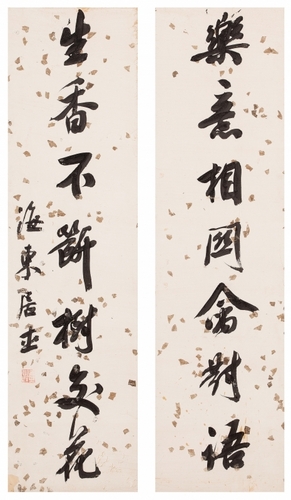 樂意相關禽對語
生香不斷樹交花
海東居士